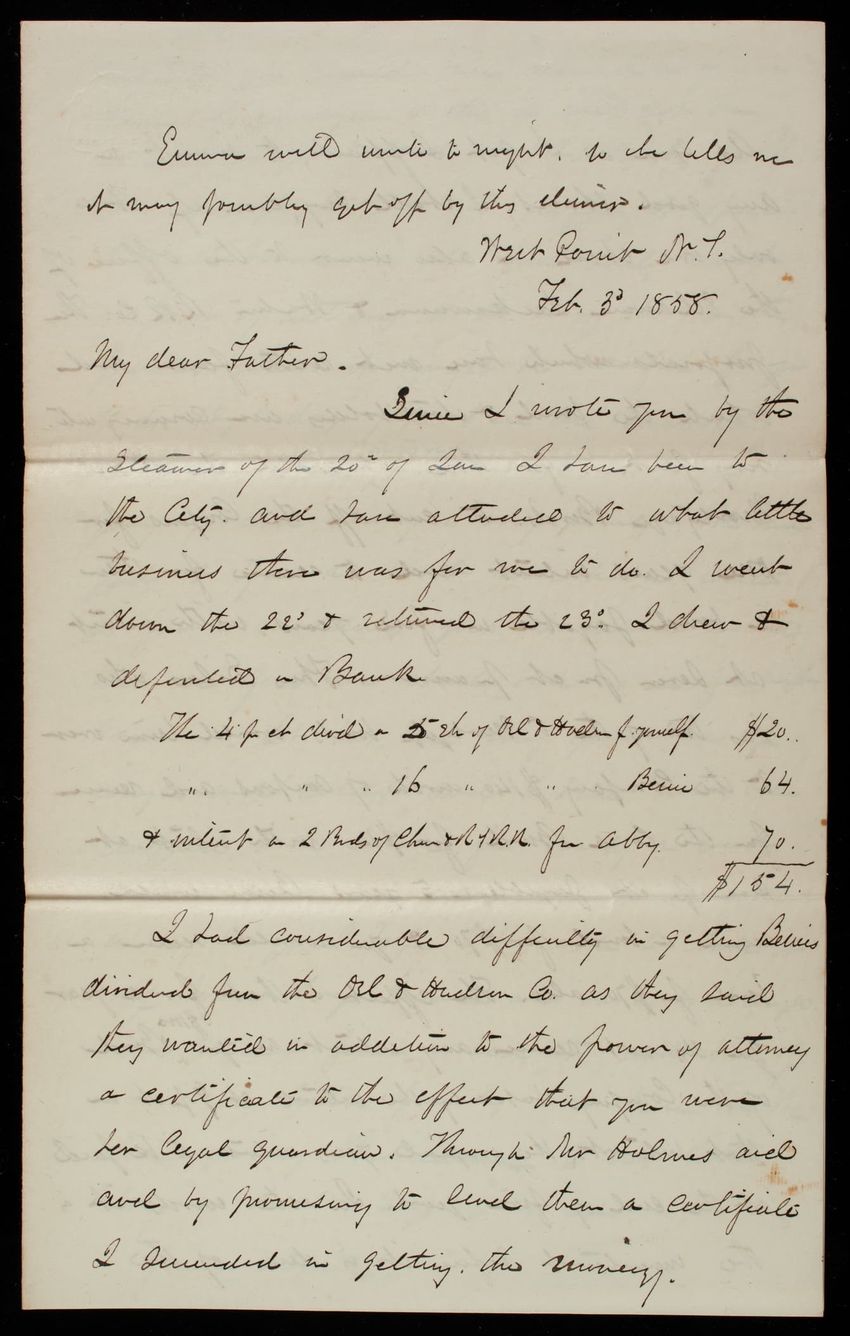 Emma will write to night. so she tells me
it may possibly get off by this steamer.
West Point N.Y.
Feb. 3d 1858.
My dear Father.
Since I wrote you by the
Steamer of the 20th of Jan I have been to
the City. and have attended to what little
business there was for me to do. I went
down the 22d & returned the 23d. I drew &
deposited in Bank
The 4 pr ct divd on 5 sh of Del & Hudson f. yourself. $20..
" " " 16 " " Bessie 64.
& interest on 2 Bnds of Chi & R.I. R.R. for Abby. 70.
$154.
I had considerable difficulty in getting Bessies
dividend from the Del & Hudson Co. as they said
they wanted in addition to the power of attorney
a certificate to the effect that you were
her legal guardian. Through Mr Holmes aid
and by promising to send them a certificate
I succeeded in getting. the money.